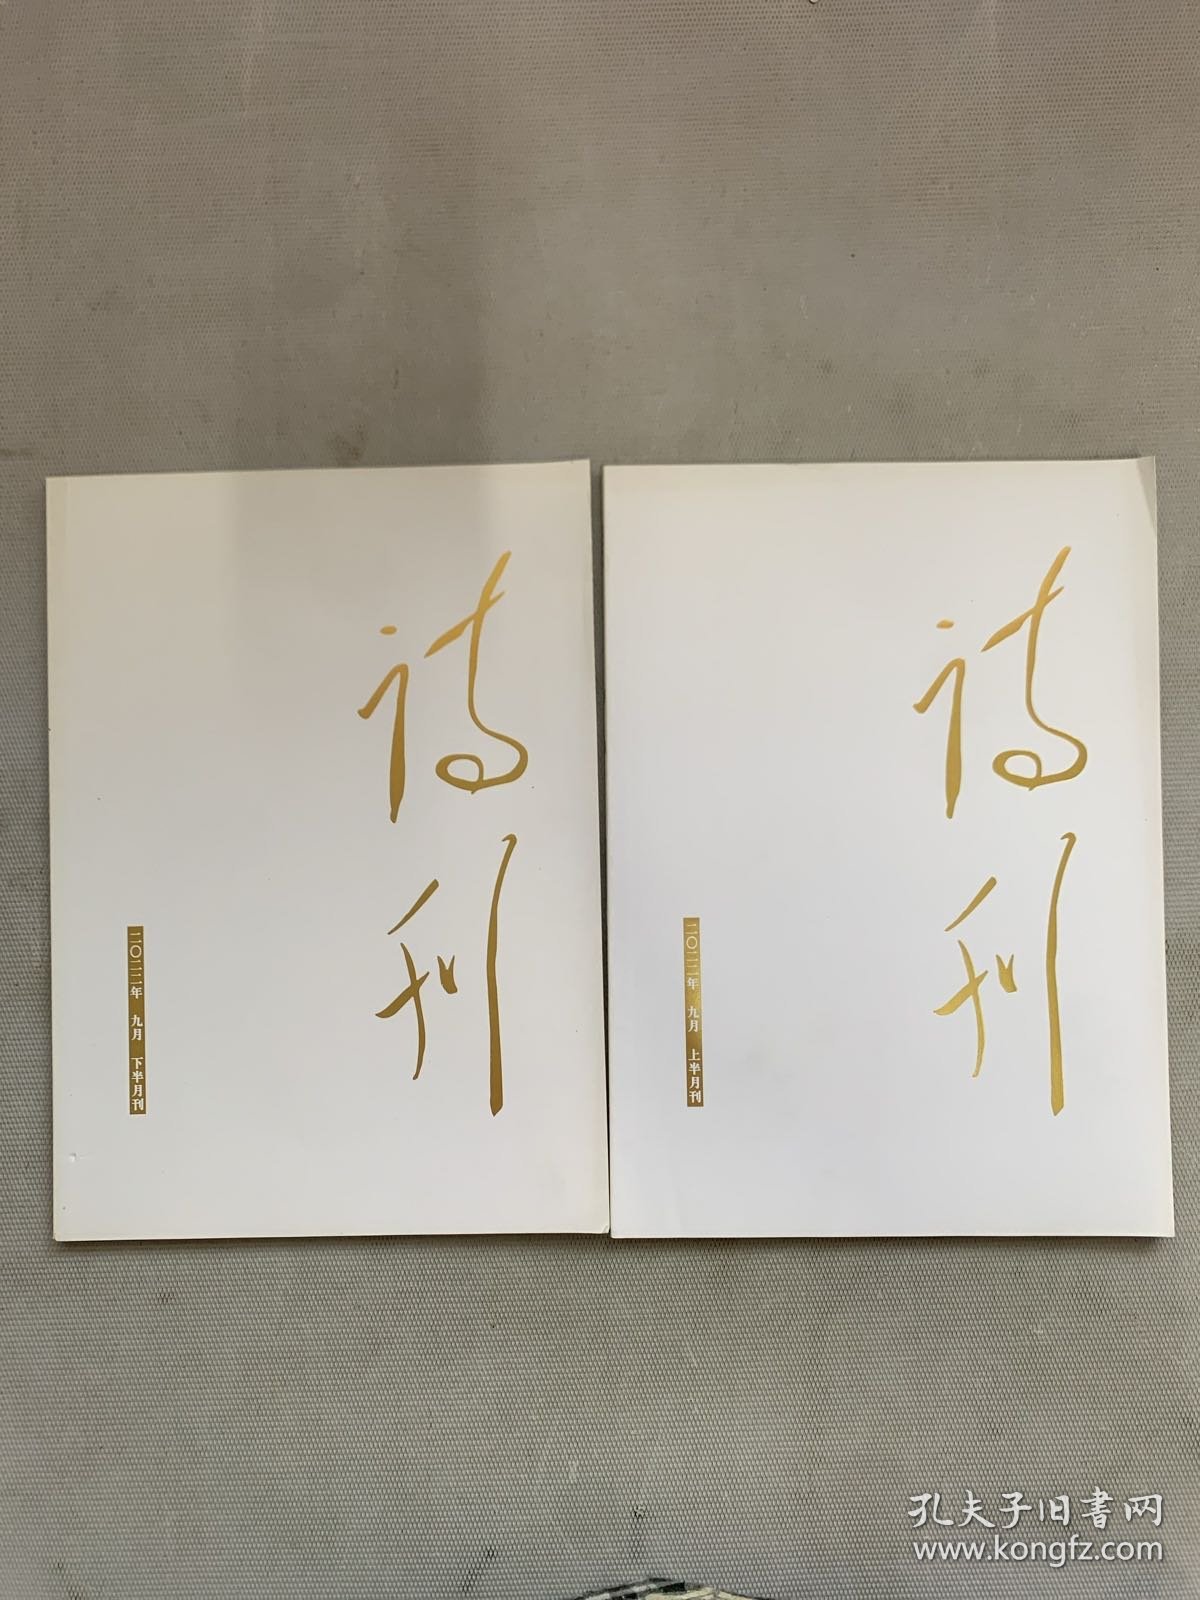 诗刊
二〇二二年 九月 下半月刊
诗刊
二〇二二年 九月 上半月刊
孔夫子旧書网
www.kongfz.com